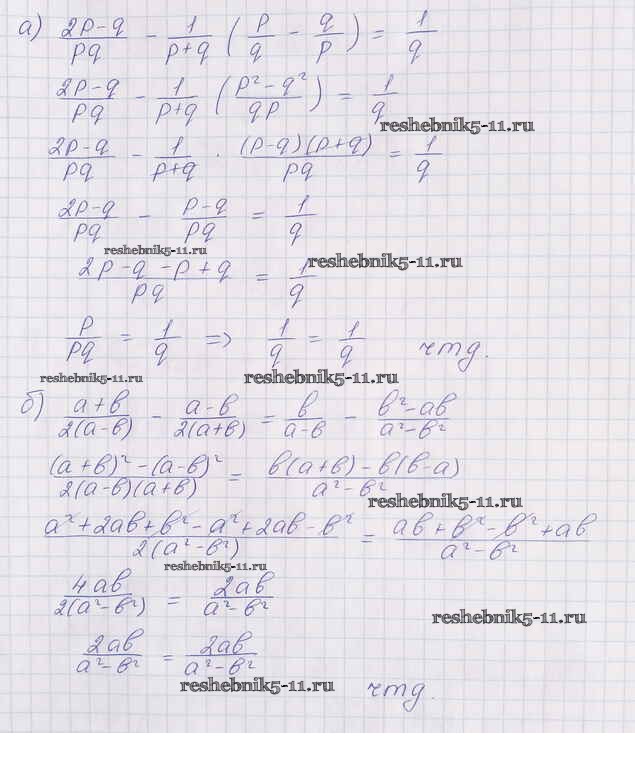 а) (2p-q)/(pq) - 1/(p+q) (p/q - q/p) = 1/q
(2p-q)/(pq) - 1/(p+q) ((p²-q²)/(qp)) = 1/q
reshebnik5-11.ru
(2p-q)/(pq) - 1/(p+q) · ((p-q)(p+q))/(pq) = 1/q
(2p-q)/(pq) - (p-q)/(pq) = 1/q
reshebnik5-11.ru
reshebnik5-11.ru
(2p-q-p+q)/(pq) = 1/q
p/(pq) = 1/q => 1/q = 1/q чтд.
reshebnik5-11.ru
reshebnik5-11.ru
б) (a+b)/(2(a-b)) - (a-b)/(2(a+b)) = b/(a-b) - (b²-ab)/(a²-b²)
((a+b)²-(a-b)²)/(2(a-b)(a+b)) = (b(a+b)-b(b-a))/(a²-b²)
reshebnik5-11.ru
(a²+2ab+b²-a²+2ab-b²)/(2(a²-b²)) = (ab+b²-b²+ab)/(a²-b²)
reshebnik5-11.ru
4ab/(2(a²-b²)) = 2ab/(a²-b²)
reshebnik5-11.ru
2ab/(a²-b²) = 2ab/(a²-b²)
reshebnik5-11.ru
чтд.